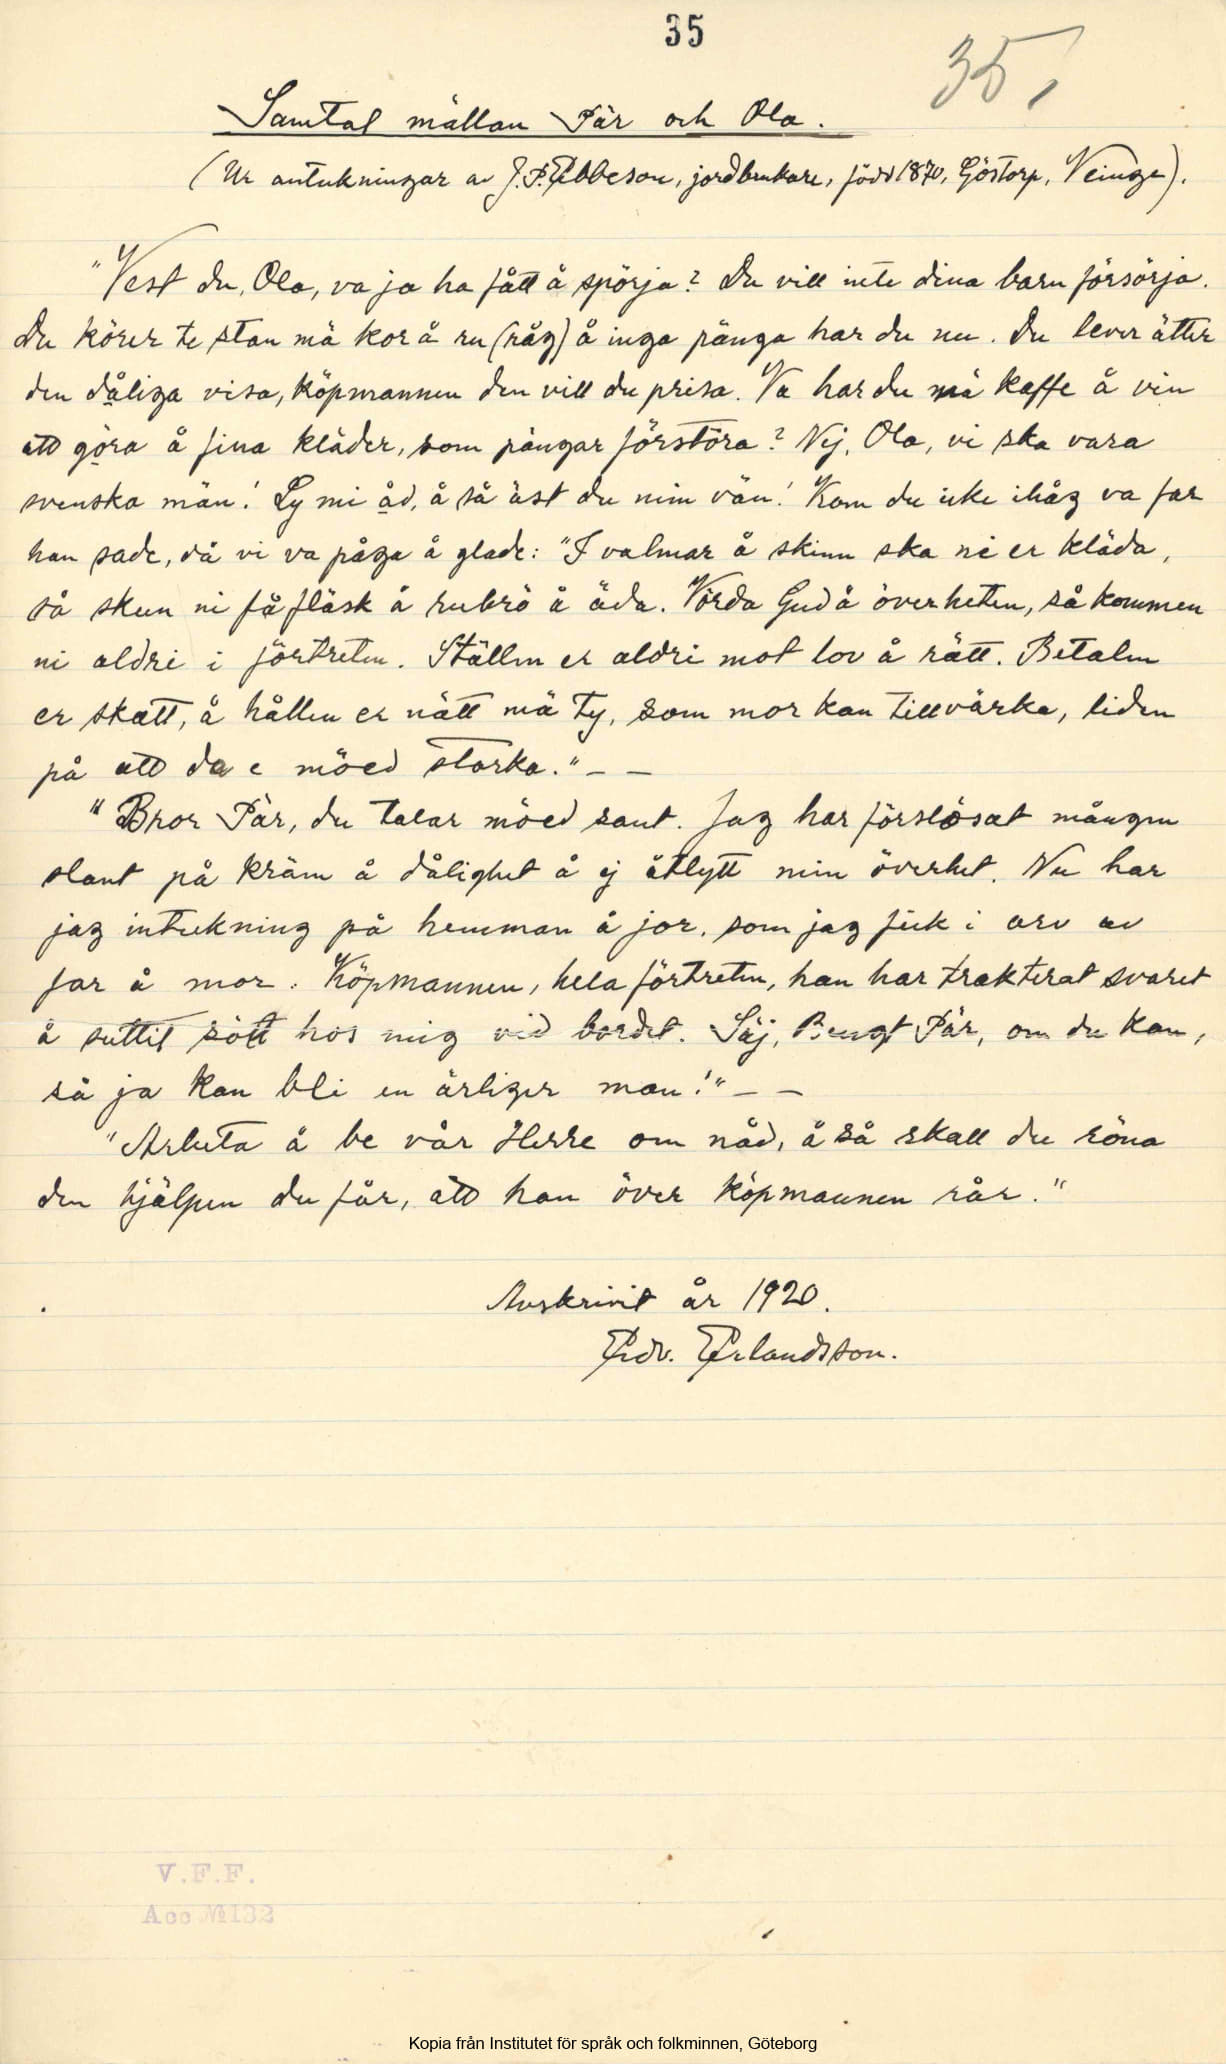 35
35,
Samtal mällan Pär och Ola.
(Ur anteckningar av J.P. Ebbeson, jordbrukare, född 1870, Göstorp, Veinge).
"Vest du, Ola, va ja ha fått å spörja? Du vill inte dina barn försörja.
Du körer te stan mä kor å ru (råg) å inga pänga har du nu. Du lever ätter
den dåliga visa, köpmannen den vill du prisa. Va har du mä kaffe å vin
att göra å fina kläder, som pängar förstöra? Nej, Ola, vi ska vara
svenska män! Ly mi åd, å så äst du min vän! Kom du icke ihåg va far
han sade, då vi va påga å glade: "I valmar å skinn ska ni er kläda,
så skun ni få fläsk å rubrö å äda. Vörda Gud å överheten, så kommen
ni aldri i förtreten. Ställen er aldri mot lov å rätt. Betalen
er skatt, å hållen er nätt mä ty, som mor kan tillvärka, liden
på att da e möed starka." – –
"Bror Pär, du talar möed sant. Jag har förslösat mången
slant på kräm å dålighet å ej åtlytt min överhet. Nu har
jag inteckning på hemman å jor, som jag fick i arv av
far å mor. Köpmannen, hela förtreten, han har trakterat svaret
å suttit sött hos mig vid bordet. Säj, Bengt Pär, om du kan,
så ja kan bli en ärliger man!" – –
"Arbeta å be vår Herre om nåd, å så skall du röna
den hjälpen du får, att han över köpmannen rår."
Avskrivit år 1920.
Edv. Erlandsson.
V.F.F.
Acc № 132
Kopia från Institutet för språk och folkminnen, Göteborg